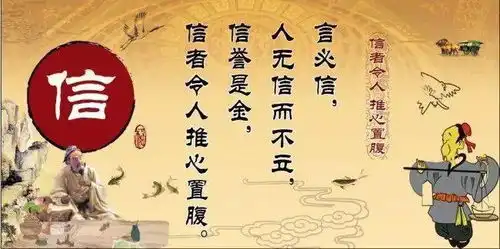 信
言必信，
人无信而不立，
信誉是金，
信者令人推心置腹。
信者令人推心置腹